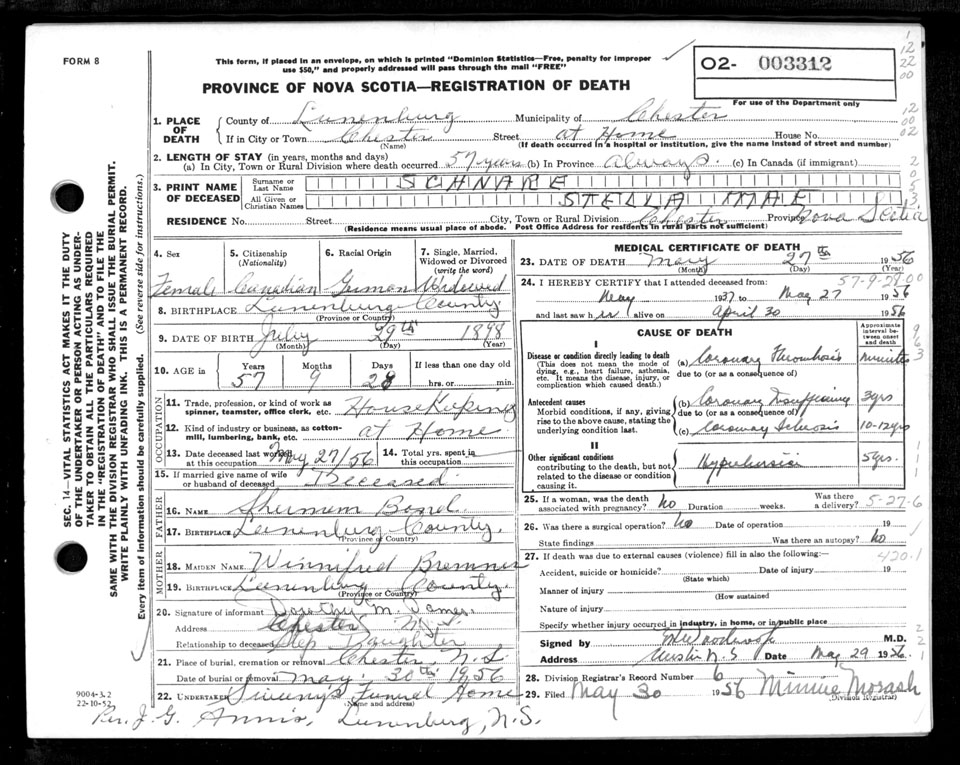 FORM 8
This form, if placed in an envelope, on which is printed "Dominion Statistics—Free, penalty for improper
use $50," and properly addressed will pass through the mail "FREE"
O2- 003312
For use of the Department only
PROVINCE OF NOVA SCOTIA—REGISTRATION OF DEATH
1. PLACE OF DEATH
County of Lunenburg Municipality of Chester
If in City or Town Chester Street at Home House No.
(Name) (If death occurred in a hospital or institution, give the name instead of street and number)
2. LENGTH OF STAY (in years, months and days)
(a) In City, Town or Rural Division where death occurred 57 years (b) In Province always. (c) In Canada (if immigrant)
3. PRINT NAME OF DECEASED
Surname or Last Name SCHNARE
All Given or Christian Names STELLA MAE
RESIDENCE No. Street City, Town or Rural Division Chester Province Nova Scotia
(Residence means usual place of abode. Post Office Address for residents in rural parts not sufficient)
4. Sex Female
5. Citizenship (Nationality) Canadian
6. Racial Origin German
7. Single, Married, Widowed or Divorced (write the word) Widowed
8. BIRTHPLACE Lunenburg County
(Province or Country)
9. DATE OF BIRTH July 29th 1898
(Month) (Day) (Year)
10. AGE in Years 57 Months 9 Days 28 If less than one day old hrs. or min.
OCCUPATION
11. Trade, profession, or kind of work as spinner, teamster, office clerk, etc. HouseKeeping
12. Kind of industry or business, as cotton-mill, lumbering, bank, etc. at Home
13. Date deceased last worked at this occupation May 27/56
14. Total yrs. spent in this occupation
15. If married give name of wife or husband of deceased Deceased
FATHER
16. NAME Bond
17. BIRTHPLACE Lunenburg County.
(Province or Country)
MOTHER
18. MAIDEN NAME Winnifred Bremner
19. BIRTHPLACE Lunenburg County.
(Province or Country)
20. Signature of informant Dorothy M. James
Address Chester N.S.
Relationship to deceased Step Daughter
21. Place of burial, cremation or removal Chester, N.S.
Date of burial or removal May. 30th 1956
22. UNDERTAKER Sweeny's Funeral Home
(Name and address)
Per. J. G. Annis, Lunenburg, N.S.
9004-3.2
22-10-52
MEDICAL CERTIFICATE OF DEATH
23. DATE OF DEATH May 27th 1956
(Month) (Day) (Year)
24. I HEREBY CERTIFY that I attended deceased from:
May 1937 to May 27 1956
and last saw her alive on April 30 1956
CAUSE OF DEATH
Approximate interval between onset and death
I
Disease or condition directly leading to death
(This does not mean the mode of dying, e.g., heart failure, asthenia, etc. It means the disease, injury, or complication which caused death.)
(a) Coronary Thrombosis minutes
due to (or as a consequence of)
Antecedent causes
Morbid conditions, if any, giving rise to the above cause, stating the underlying condition last.
(b) Coronary Insufficiency 3yrs
due to (or as a consequence of)
(c) Coronary Sclerosis 10-12yrs
II
Other significant conditions
contributing to the death, but not related to the disease or condition causing it.
Hypertension 5yrs.
25. If a woman, was the death associated with pregnancy? no Duration weeks. Was there a delivery? 5-27-6
26. Was there a surgical operation? no Date of operation 19
State findings Was there an autopsy? no
27. If death was due to external causes (violence) fill in also the following:—
420.1
Accident, suicide or homicide? Date of injury 19
(State which)
Manner of injury
(How sustained)
Nature of injury
Specify whether injury occurred in industry, in home, or in public place
Signed by M.D.
Address N.S Date May 29 1956.
28. Division Registrar's Record Number 6
29. Filed May 30 1956 Minnie Morash
(Division Registrar)
SEC. 14—VITAL STATISTICS ACT MAKES IT THE DUTY
OF THE UNDERTAKER OR PERSON ACTING AS UNDER-
TAKER TO OBTAIN ALL THE PARTICULARS REQUIRED
IN THE "REGISTRATION OF DEATH" AND TO FILE THE
SAME WITH THE DIVISION REGISTRAR WHO SHALL ISSUE THE BURIAL PERMIT.
WRITE PLAINLY WITH UNFADING INK. THIS IS A PERMANENT RECORD.
Every item of information should be carefully supplied. (See reverse side for instructions.)